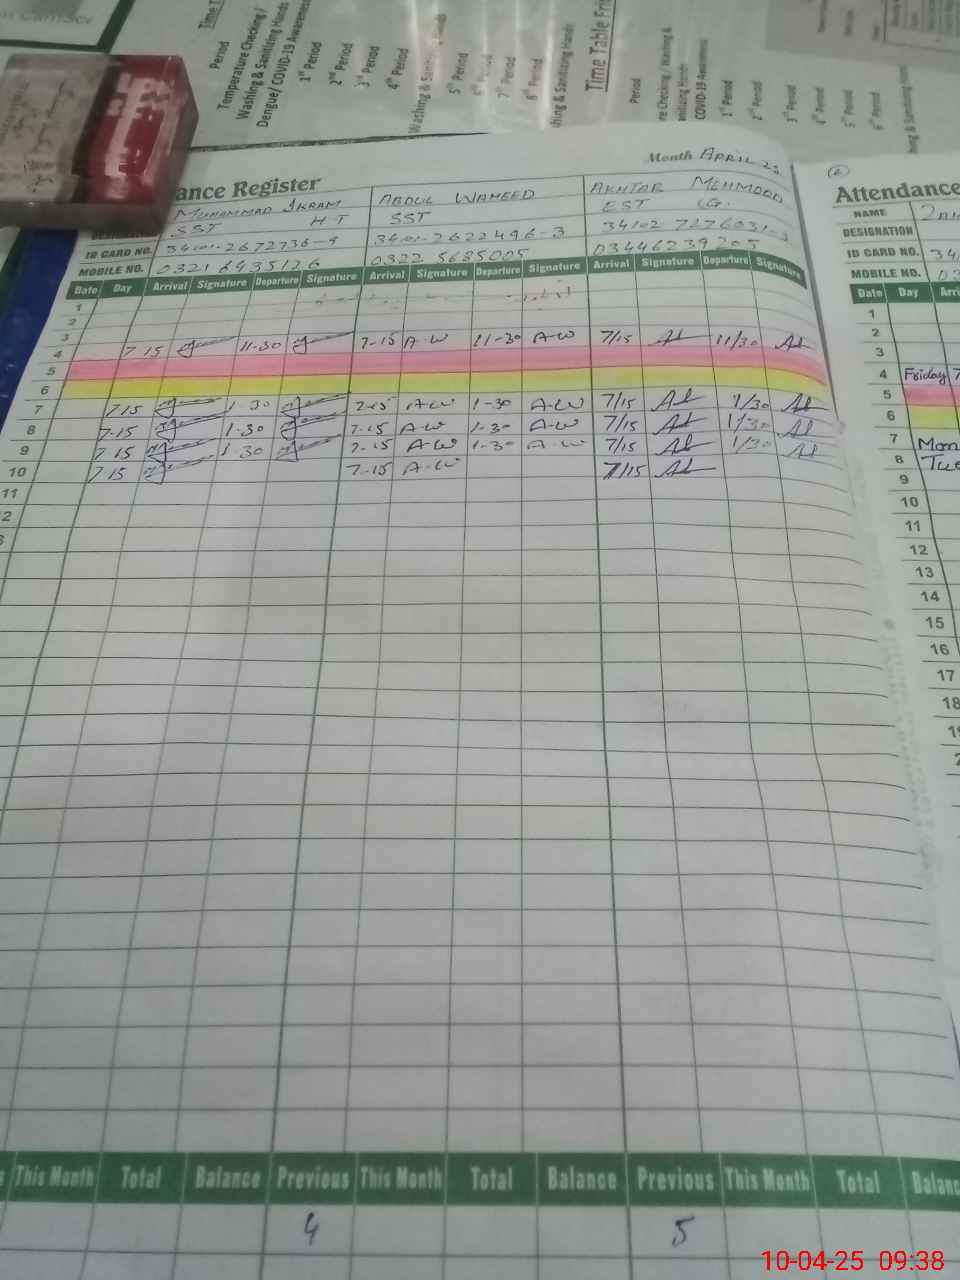 Time T
Period
Temperature Checking /
Washing & Sanitizing Hands
Dengue/ COVID-19 Awareness
1st Period
2nd Period
3rd Period
4th Period
Washing & Sanitizing Hands
5th Period
6th Period
7th Period
8th Period
hing & Sanitizing Hands
Time Table Frid
Period
re Checking / Washing &
anitizing Hands
COVID-19 Awareness
1st Period
2nd Period
3rd Period
4th Period
5th Period
6th Period
ance Register
Month APRIL 25
MUHAMMAD IKRAM ABDUL WAHEED AKHTAR MEHMOOD
SST H.T SST EST (G.
ID CARD NO. 34101-2672736-9 34101-2622496-3 34102-7276031-3
MOBILE NO. 0321 6435126 0322 5685005 03446239205
Date Day Arrival Signature Departure Signature Arrival Signature Departure Signature Arrival Signature Departure Signature
1
2
3
4 7 15 11-30 7-15 A-W 11-30 A-W 7/15 11/30
5
6
7 7 15 1-30 7-15 A-W 1-30 A-W 7/15 1/30
8 7-15 1-30 7-15 A-W 1-30 A-W 7/15 1/30
9 7 15 1-30 7-15 A-W 1-30 A-W 7/15 1/30
10 7 15 7-15 A-W 7/15
11
2
3
This Month Total Balance Previous This Month Total Balance Previous This Month Total Balanc
4 5
Attendance
NAME
DESIGNATION
ID CARD NO. 34
MOBILE NO. 03
Date Day Arri
1
2
3
4 Friday 7
5
6
7 Mon
8 Tue
9
10
11
12
13
14
15
16
17
18
10-04-25 09:38